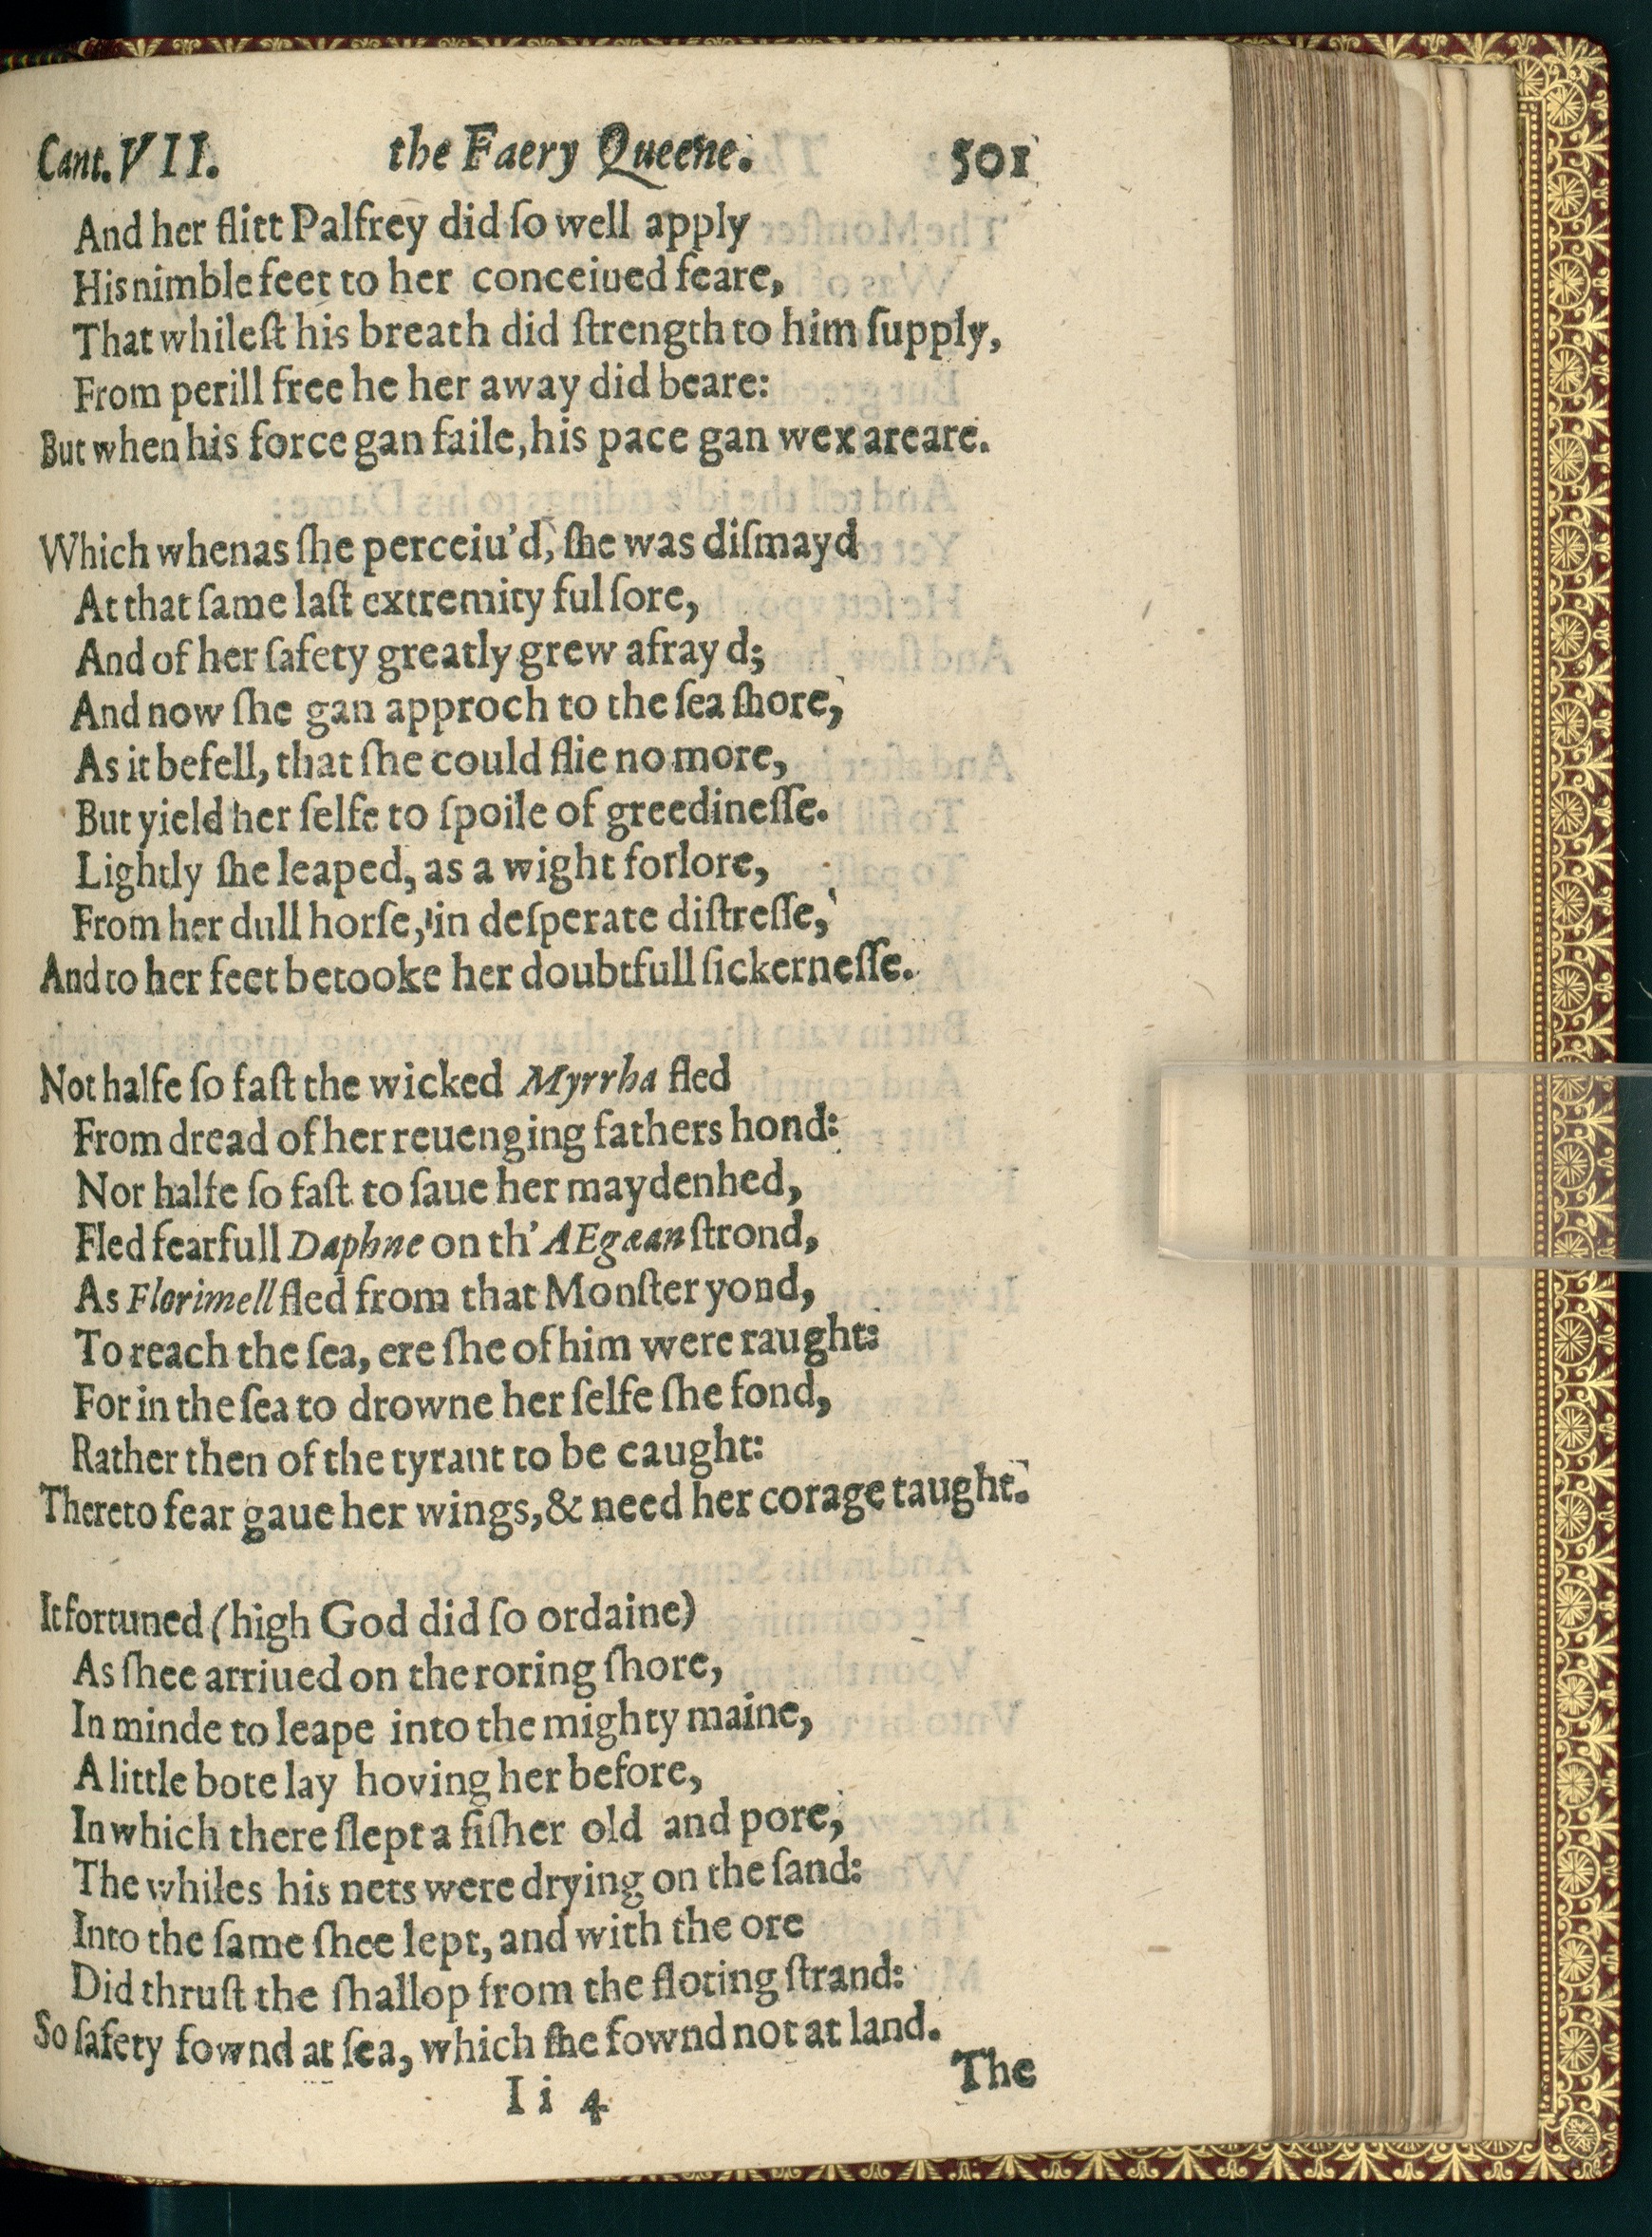 Cant. VII. the Faery Queene. 501
And her flitt Palfrey did ſo well apply
His nimble feet to her conceiued feare,
That whileſt his breath did ſtrength to him ſupply,
From perill free he her away did beare:
But when his force gan faile, his pace gan wex areare.
Which whenas ſhe perceiu'd, ſhe was diſmayd
At that ſame laſt extremity ful ſore,
And of her ſafety greatly grew afrayd;
And now ſhe gan approch to the ſea ſhore,
As it befell, that ſhe could flie no more,
But yield her ſelfe to ſpoile of greedineſſe.
Lightly ſhe leaped, as a wight forlore,
From her dull horſe, in deſperate diſtreſſe,
And to her feet betooke her doubtfull ſickerneſſe.
Not halfe ſo faſt the wicked Myrrha fled
From dread of her reuenging fathers hond:
Nor halfe ſo faſt to ſaue her maydenhed,
Fled fearfull Daphne on th' AEgæan ſtrond,
As Florimell fled from that Monſter yond,
To reach the ſea, ere ſhe of him were raught:
For in the ſea to drowne her ſelfe ſhe fond,
Rather then of the tyrant to be caught:
Thereto fear gaue her wings, & need her corage taught.
It fortuned (high God did ſo ordaine)
As ſhee arriued on the roring ſhore,
In minde to leape into the mighty maine,
A little bote lay hoving her before,
In which there ſlept a fiſher old and pore,
The whiles his nets were drying on the ſand:
Into the ſame ſhee lept, and with the ore
Did thruſt the ſhallop from the floting ſtrand:
So ſafety fownd at ſea, which ſhe fownd not at land.
Ii 4 The